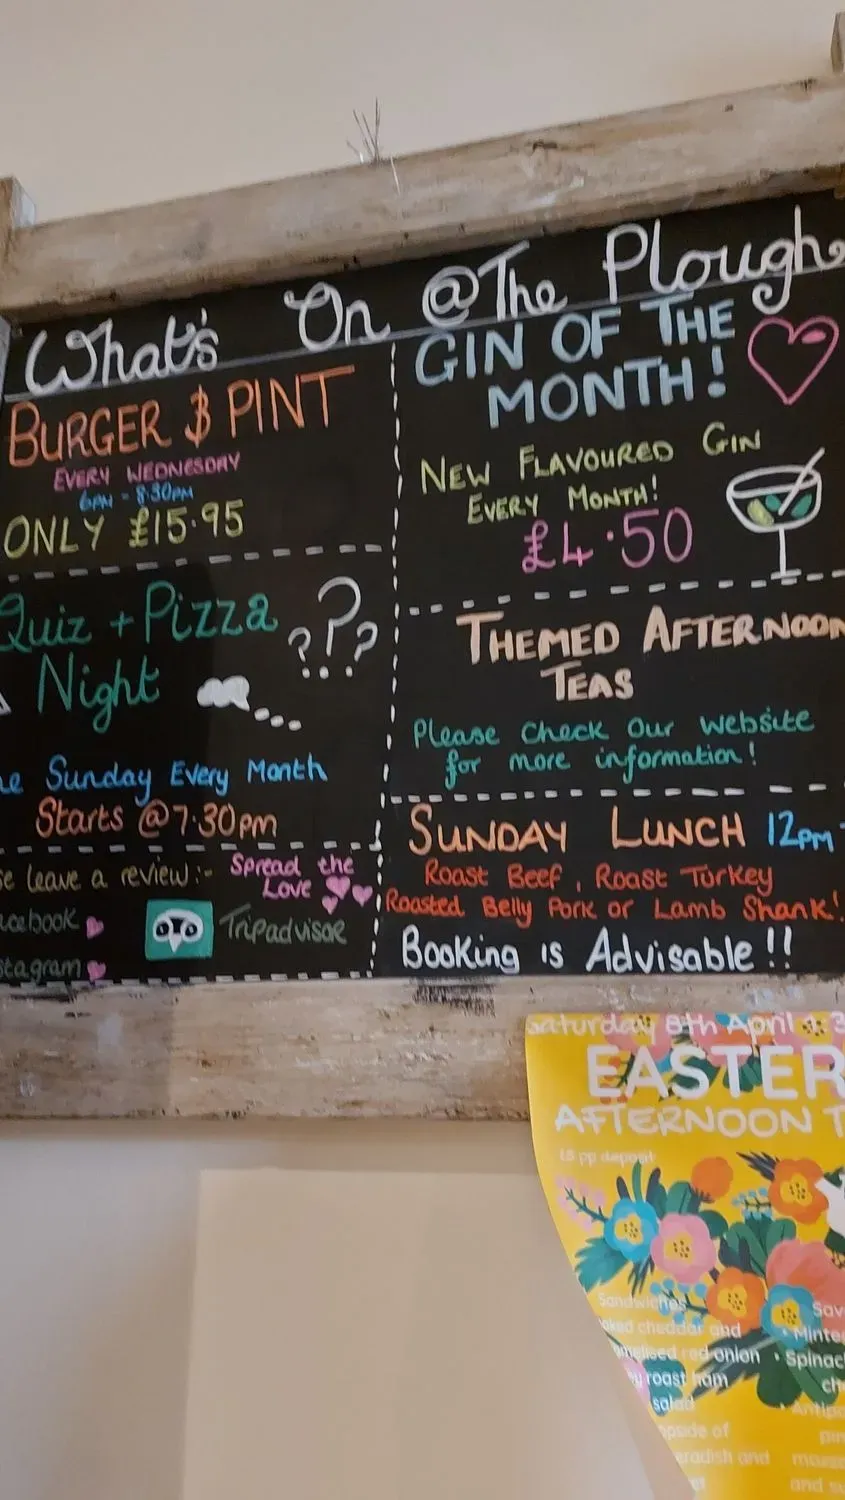 What's On @ The Plough
BURGER & PINT
EVERY WEDNESDAY
6PM - 8:30PM
ONLY £15.95
Quiz + Pizza
Night
??? 
Sunday Every Month
Starts @ 7.30pm
leave a review:-
Spread the
Love
Tripadvisor
GIN OF THE
MONTH!
NEW FLAVOURED GIN
EVERY MONTH!
£4.50
THEMED AFTERNOON
TEAS
Please Check Our Website
for more information!
SUNDAY LUNCH 12PM
Roast Beef, Roast Turkey
Roasted Belly Pork or Lamb Shank!
Booking is Advisable!!
Saturday 8th April
EASTER
AFTERNOON
pp deposit
Sandwiches
cheddar and
red onion
roast ham
salad
and
• Spinac
and